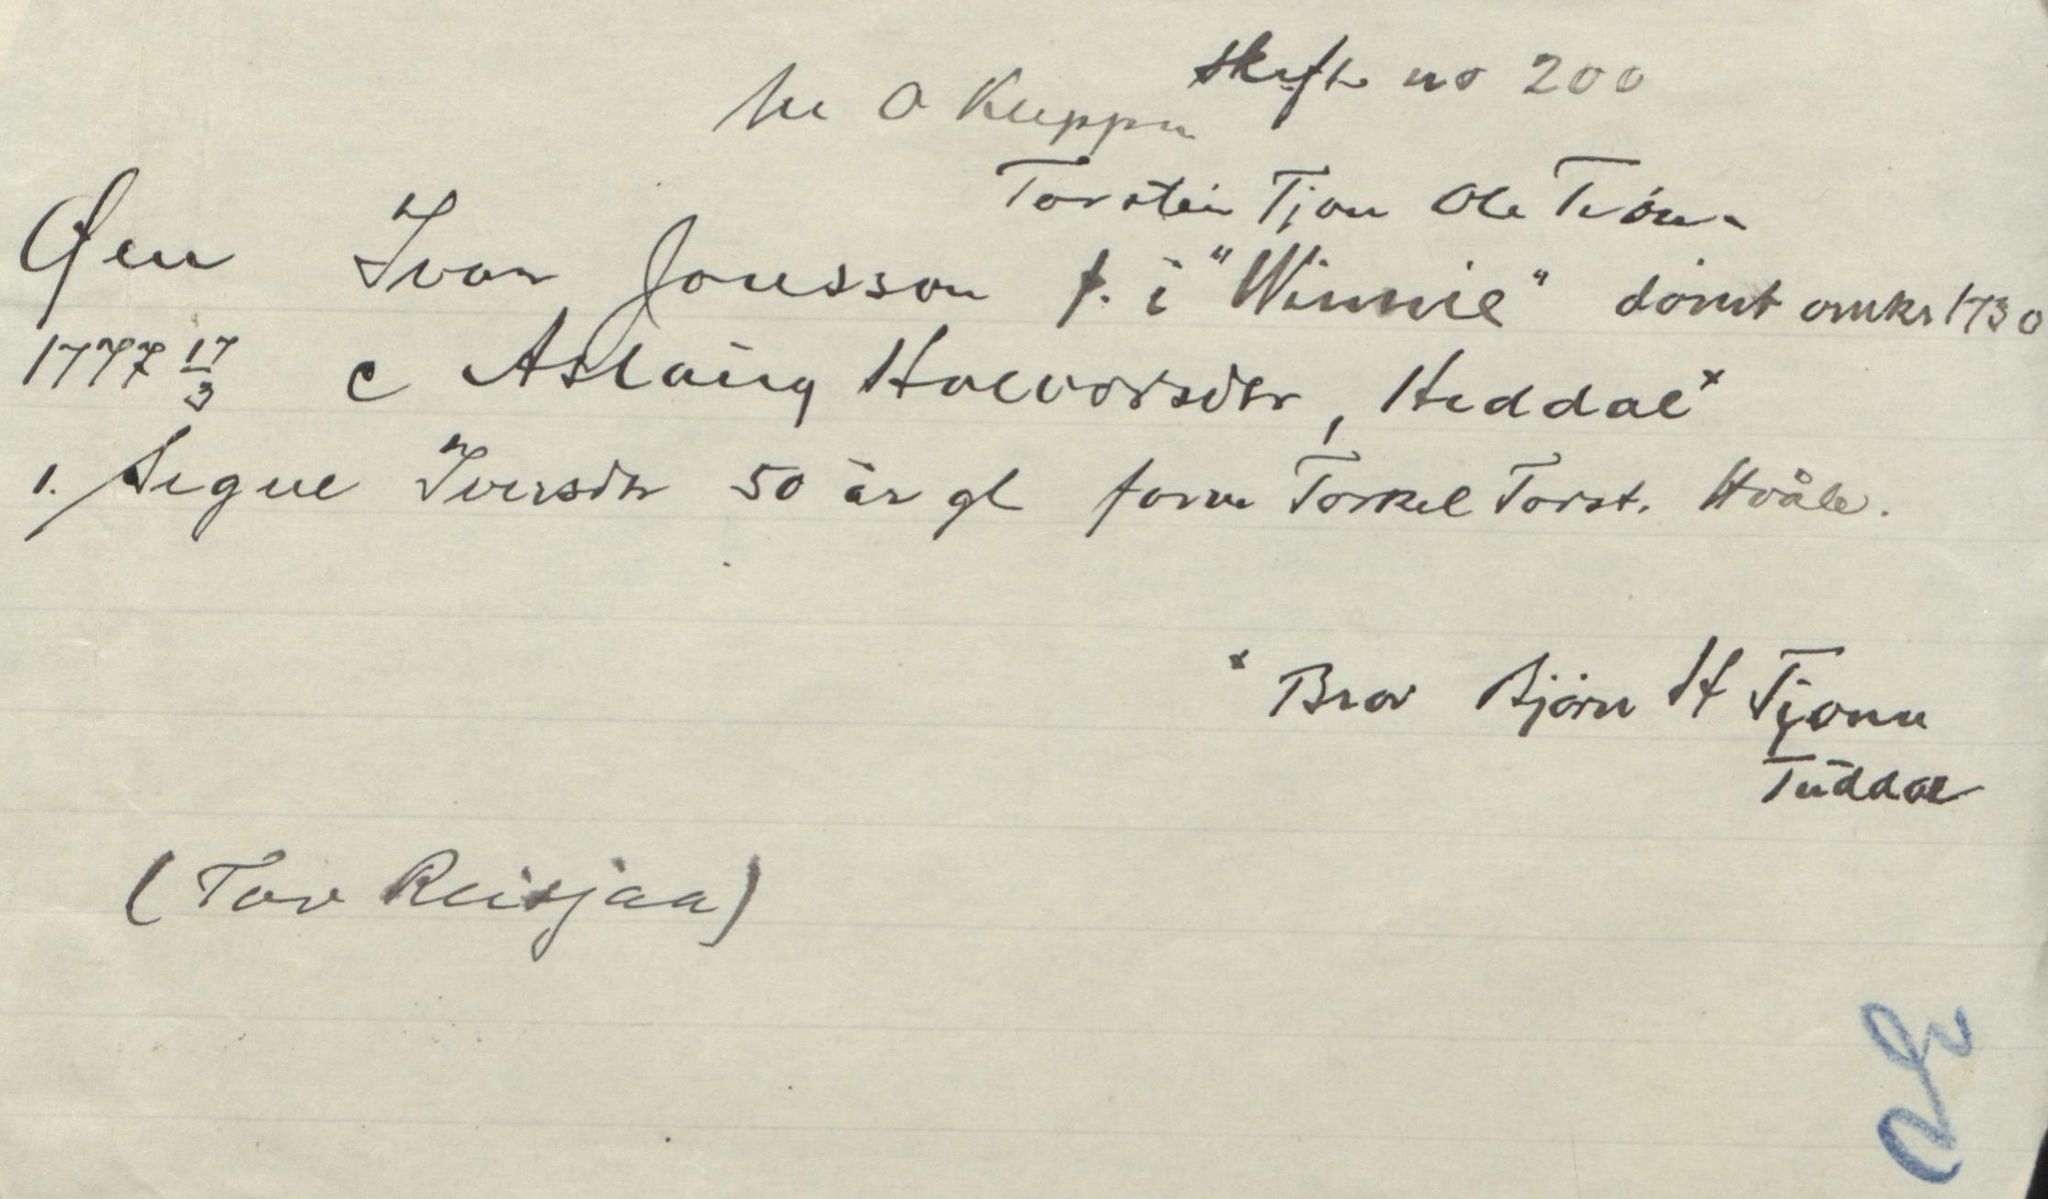 skifte no 200
O Kleppen
Torstein Tjøn Ole Tjøn
Øen Ivar Jonsson f. i "Winnie" dömt omkr 1730
1777 17/3 c Aslaüg Halvorsdtr, Heddal x
1. Signe Iversdtr 50 år gl Torkel Torst. Hvåle.
x Bror Björn H Tjønn
Tüddal
(Tov Reisjaa)